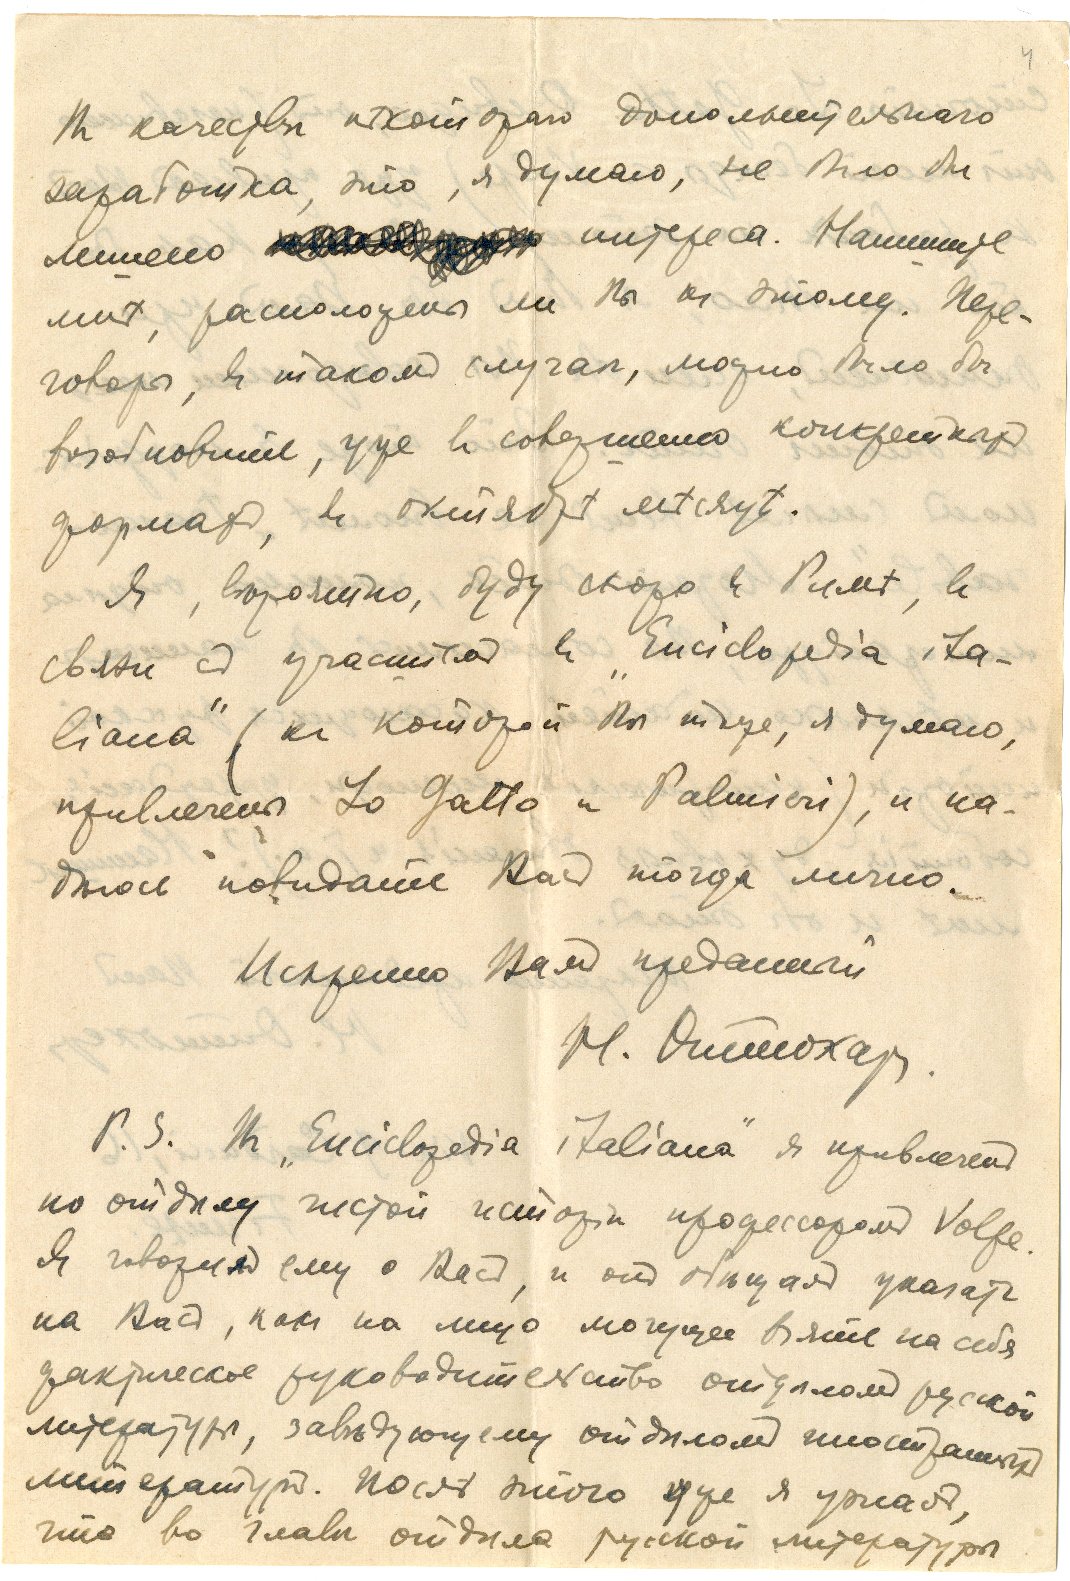 4
Въ качествѣ нѣкотораго дополнительнаго
заработка, это, я думаю, не было бы
лишено интереса. Напишите
мнѣ, расположены ли Вы къ этому. Пере-
говоры, въ такомъ случаѣ, можно было бы
возобновить, уже въ совершенно конкретныхъ
формахъ, въ октябрѣ мѣсяцѣ.
Я, вѣроятно, буду скоро въ Римѣ, въ
связи съ участіемъ въ „Enciclopedia ita-
liana" (къ которой Вы тоже, я думаю,
привлечены Lo Gatto и Palmieri), и на-
дѣюсь повидать Васъ тогда лично.
Искренно Вамъ преданный
Н. Оттокаръ.
P.S. Въ „Enciclopedia italiana" я привлеченъ
по отдѣлу чистой исторіи профессоромъ Volpe.
Я говорилъ ему о Васъ, и онъ обѣщалъ указать
на Васъ, какъ на лицо могущее взять на себя
фактическое руководительство отдѣломъ русской
литературы, завѣдующему отдѣломъ иностранныхъ
литературъ. Послѣ этого уже я узналъ,
что во главѣ отдѣла русской литературы